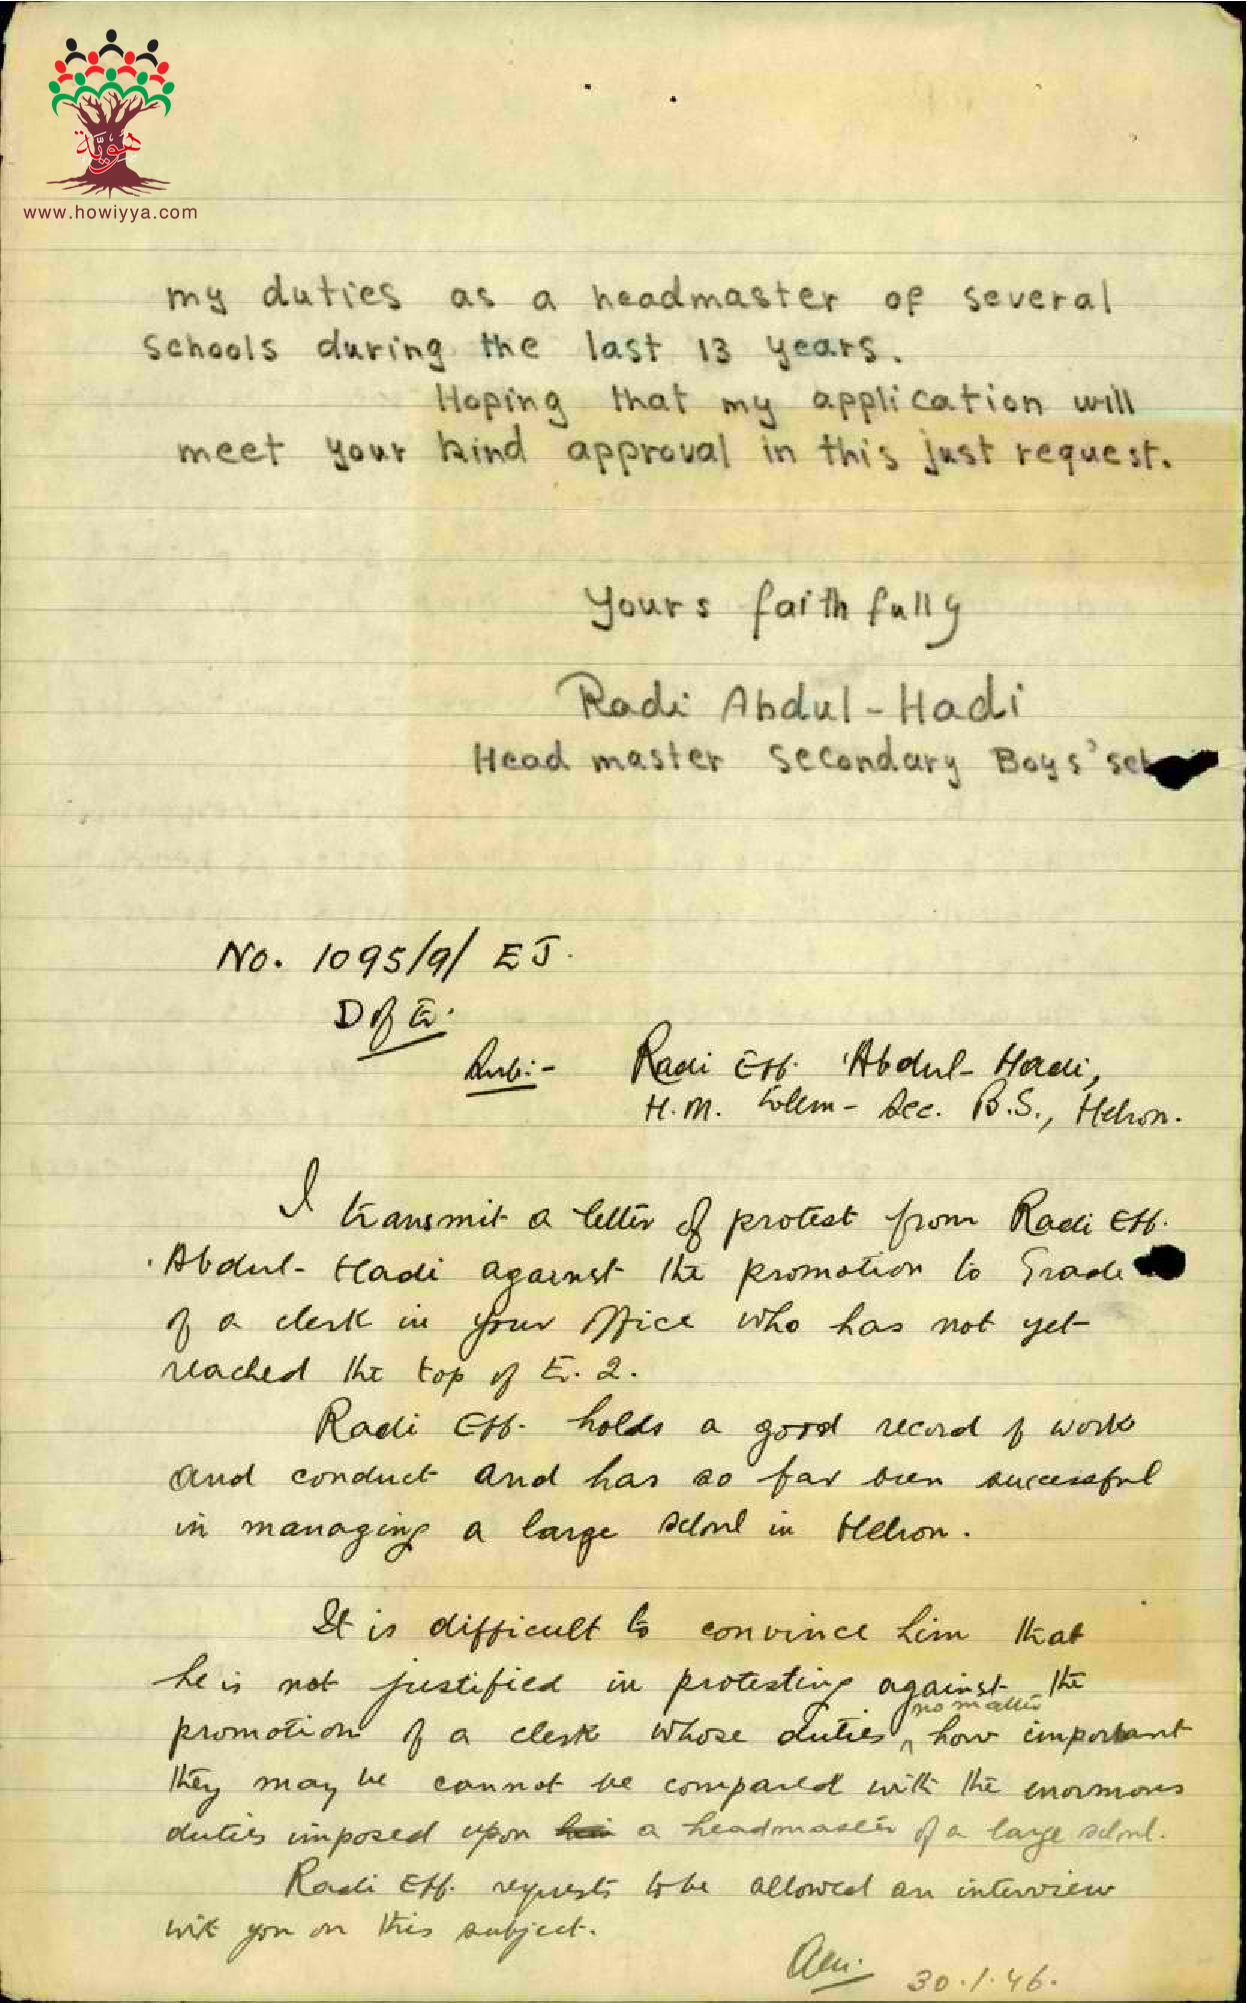 هوية
www.howiyya.com
my duties as a headmaster of several
schools during the last 13 years.
Hoping that my application will
meet your kind approval in this just request.
Yours faithfully
Radi Abdul-Hadi
Head master Secondary Boys' sch
No. 1095/9/ EJ.
D of E.
Subj:- Radi Eff. 'Abdul-Hadi,
H.M. Elem-Sec. B.S., Hebron.
I transmit a letter of protest from Radi Eff.
'Abdul-Hadi against the promotion to Grade
of a clerk in your office who has not yet
reached the top of E. 2.
Radi Eff. holds a good record of work
and conduct and has so far been successful
in managing a large school in Hebron.
It is difficult to convince him that
he is not justified in protesting against the
promotion of a clerk whose duties, no matter how important
they may be cannot be compared with the enormous
duties imposed upon a headmaster of a large school.
Radi Eff. requests to be allowed an interview
with you on this subject.
30.1.46.